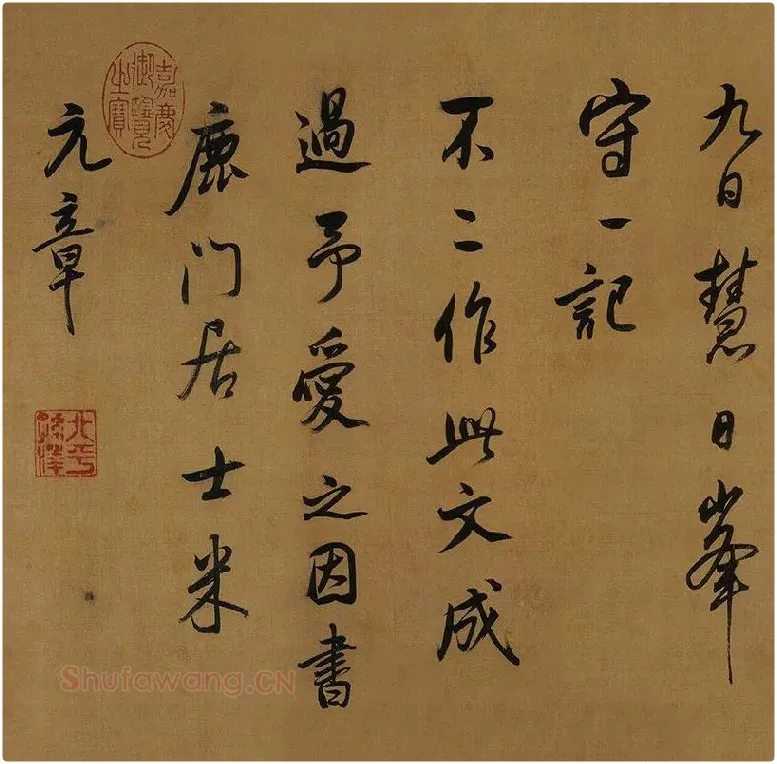 九日慧日峯
守一記
不二作此文成
過予愛之因書
鹿门居士米
元章
嘉慶
御覽
之寶
Shufawang.CN